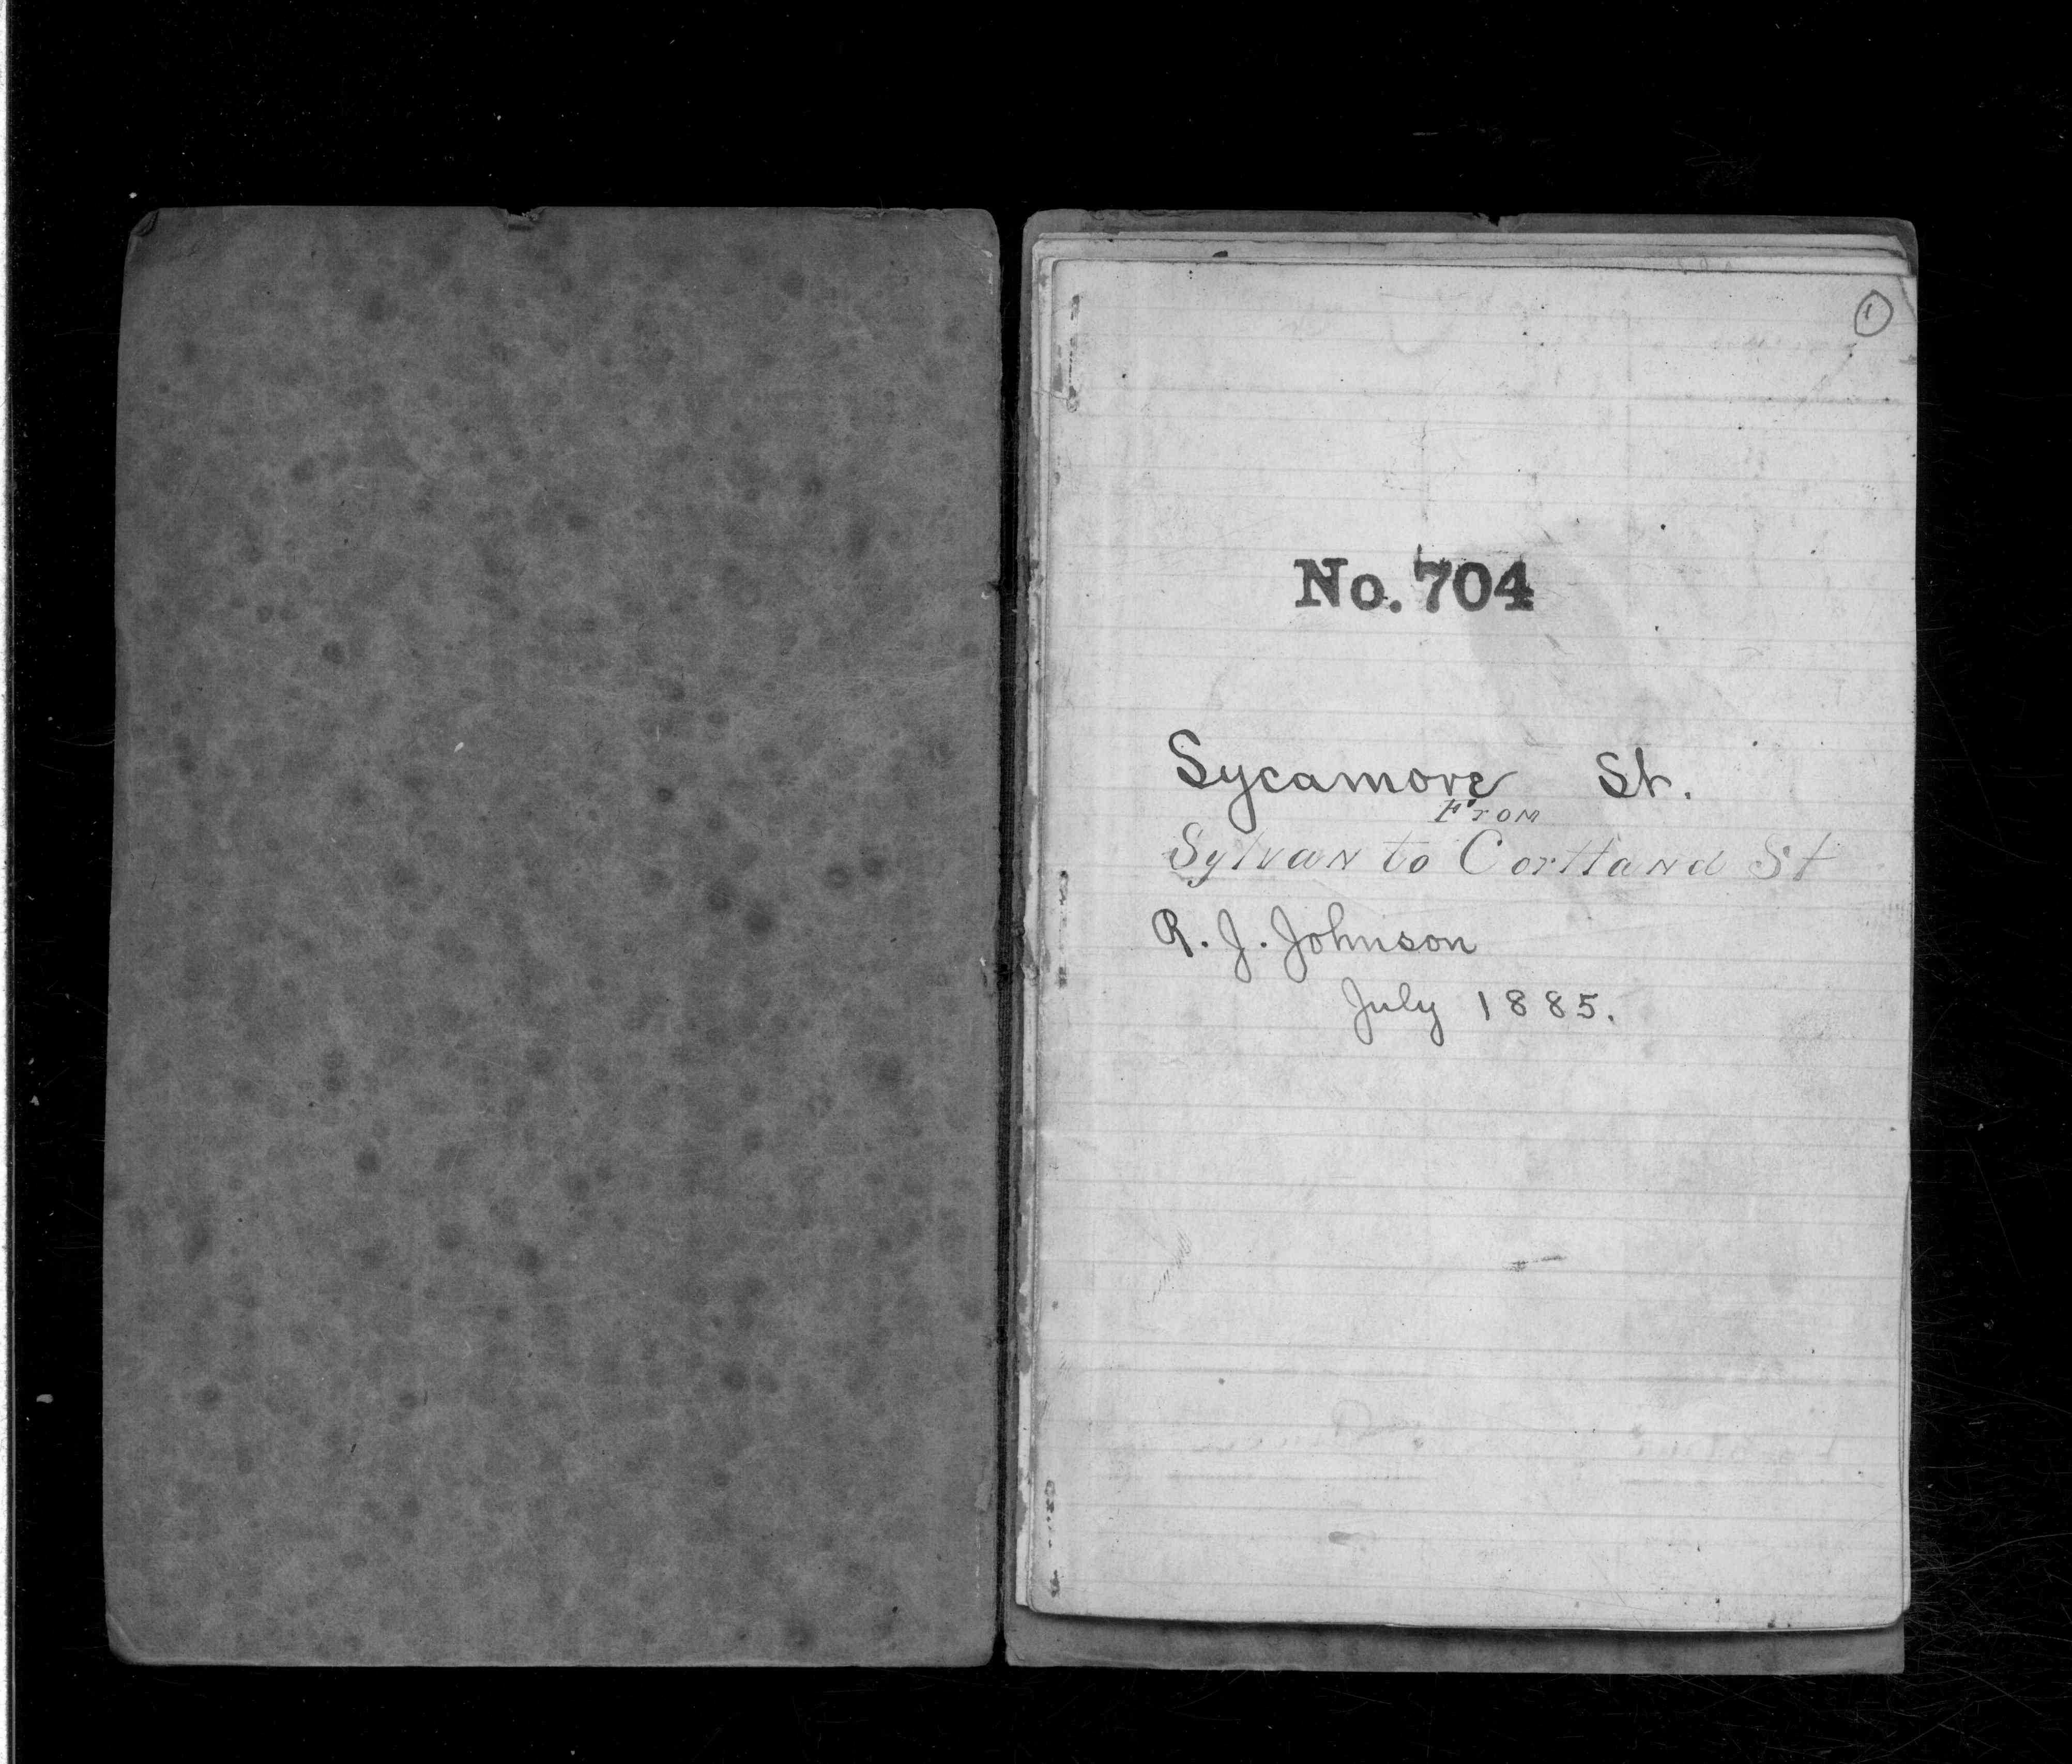 1
No. 704
Sycamore St.
From
Sylvan to Cortland St
R. J. Johnson
July 1885.